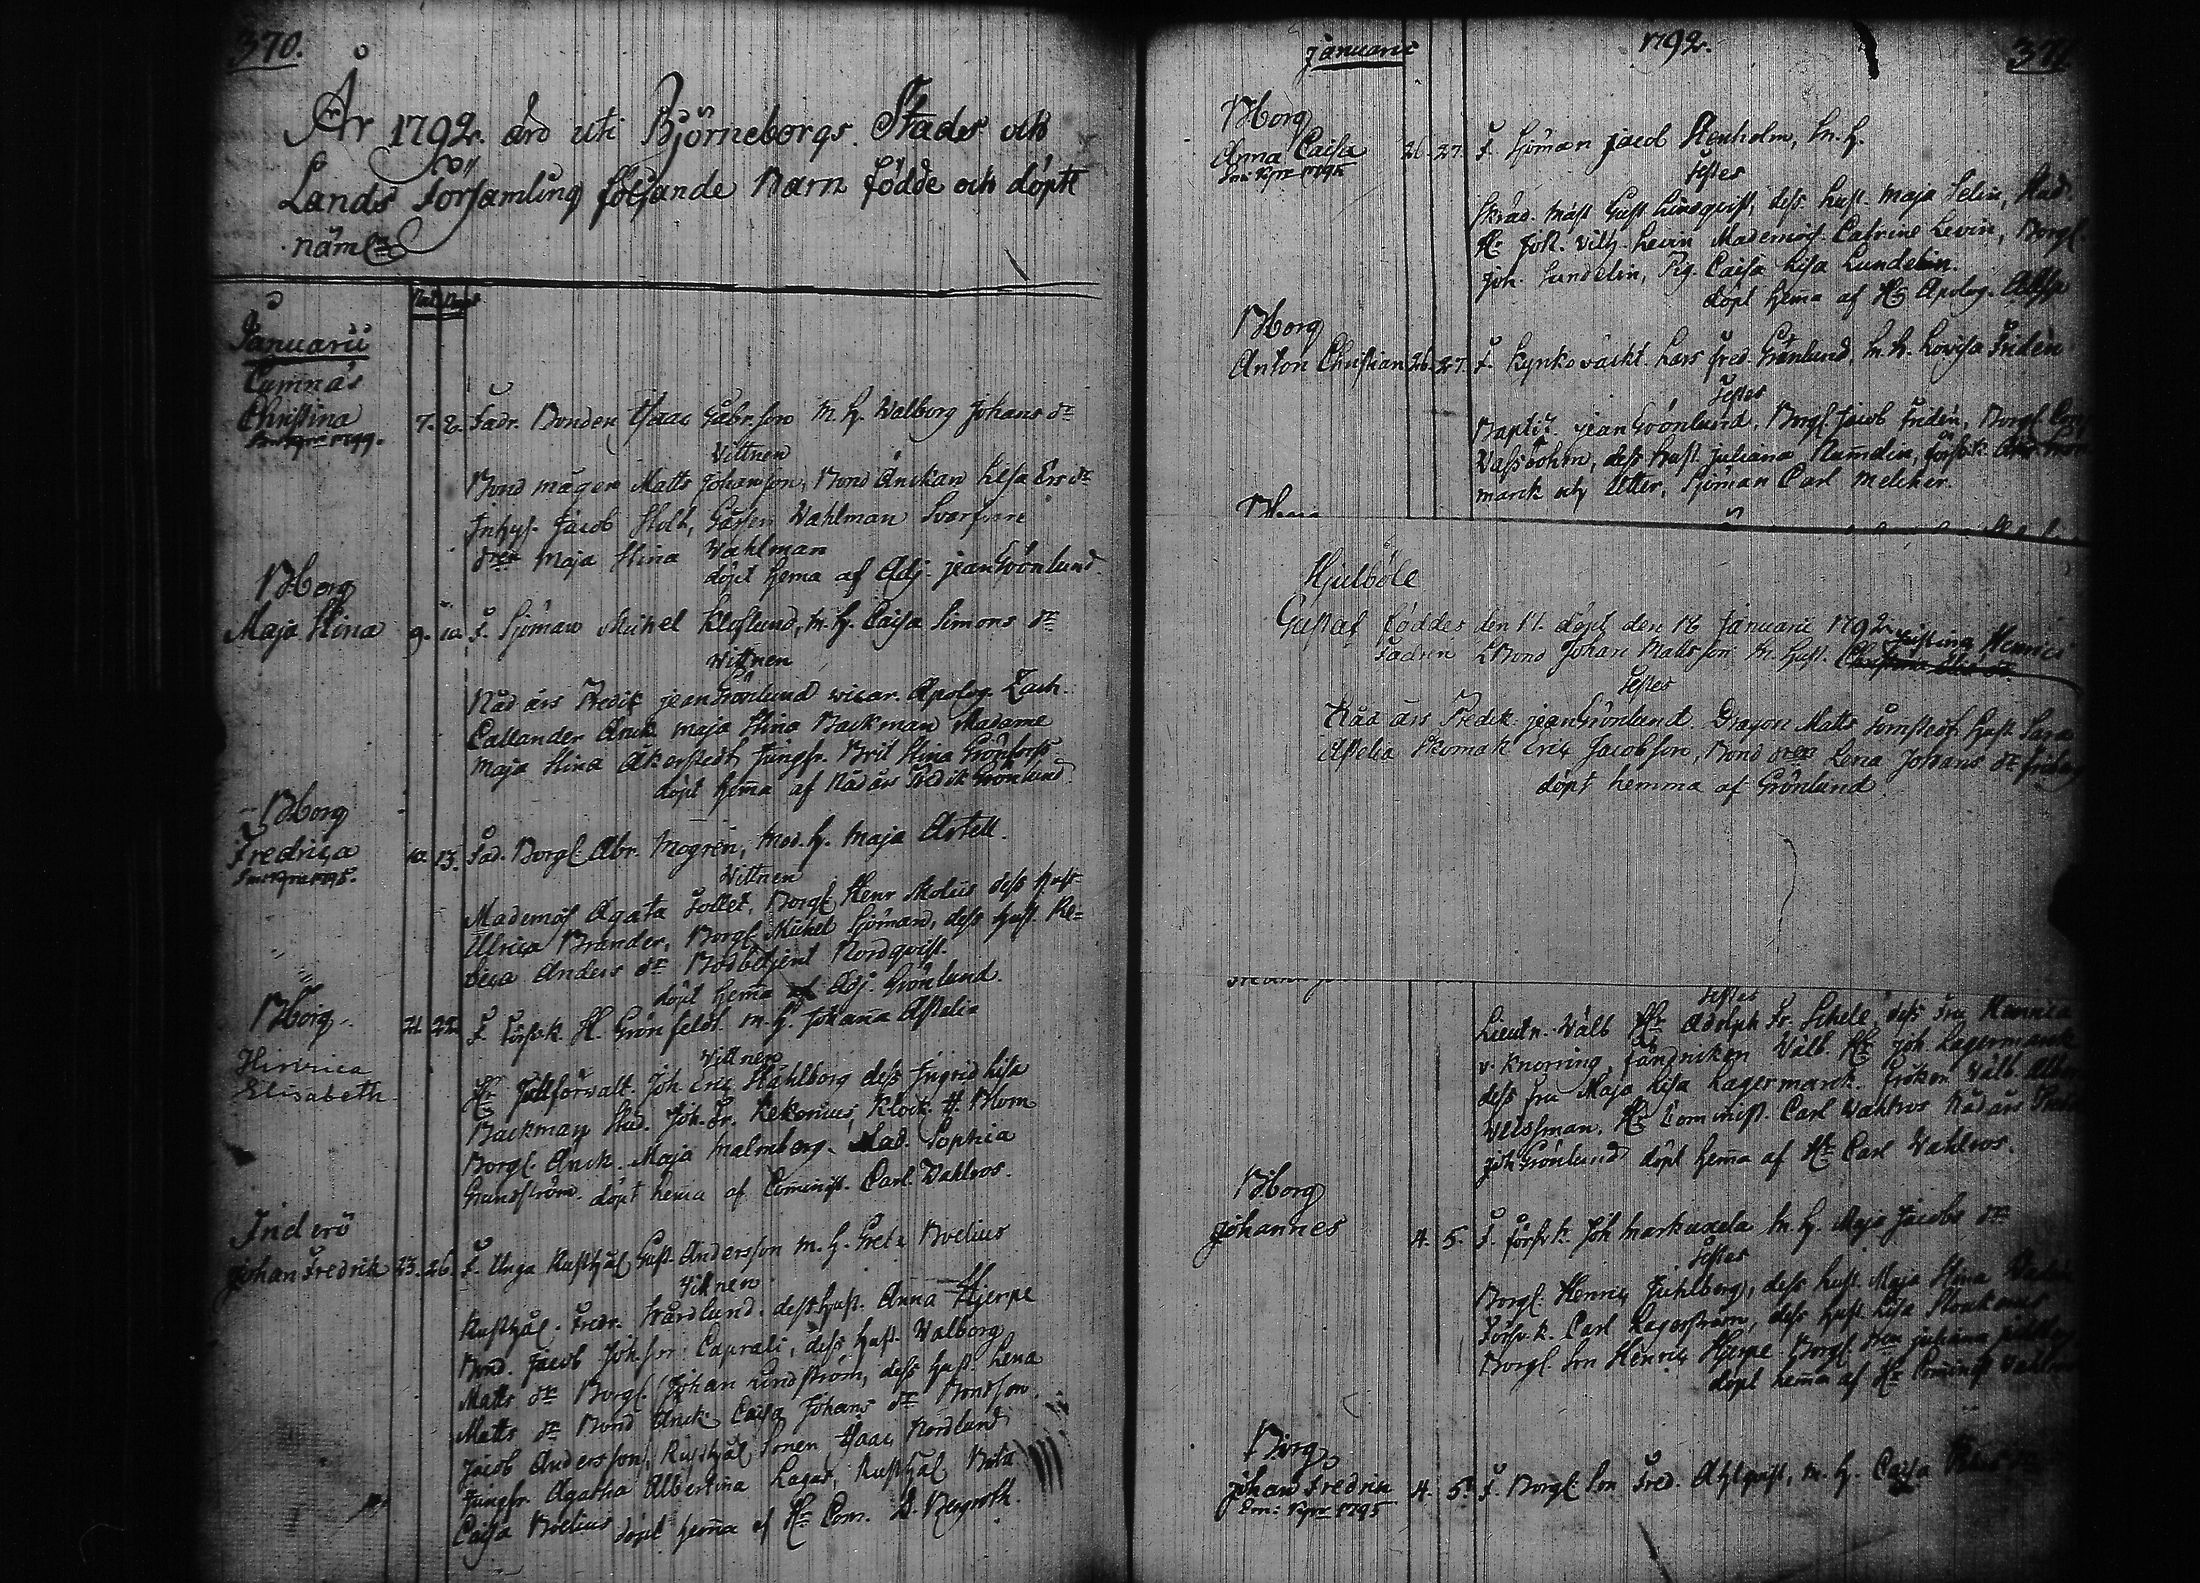 370.
År 1792 äro uti Björneborgs Stads och
Lands Församling följande Barn födde och döpte
näml:
Januarii
Christina 7. 8. Fadr. Bonden Isaac Gabr.son m. H. Walborg Johans dr
Vittnen
Bond mågen Matts Johansson, Bond Änckan Lisa Ers dr
Inhys. Jacob Holt, Gåssen Wahlman Svarfvare
dren Maja Stina Wahlman
döpt hema af Adj. Jean Grönlund
BBorg
Maja Stina 9. 10. F. Sjöman Michel Kloflund, m. H. Caisa Simons dr
Vittnen
Nåd års Predik Jean Grönlund vicar. Apolog. Zach.
Callander Änck. Maja Stina Backman Madame
Maja Stina Åkerstedt Jungfr. Brit Stina Grönfors
döpt hema af Nåd års Predik Grönlund
BBorg
Fredrica 10. 13. Fad. Borgl. Abr. Mogren, Mod. H. Maja Artell.
Vittnen
Mademos Agata Follet, Borgl. Henr Molius dess hust
Ulrica Brander, Borgl. Michel Sjöman, dess hust. Re=
beca Anders dr Bodbetjent Nordqvist.
döpt hema af Adj. Grönlund.
BBorg
Henrica
Elisabeth 21. 22. F. Försk. H. Grönfeldt m. H. Johana Astelia
Vittnen
Hr Tullförvalt. Joh Eric Ståhlborg dess Ingrid Lisa
Backman Stud. Joh. Fr. Rekonius, Klock. H. Blom
Borgl. Änck. Maja Malmberg. Mad. Sophia
Grundström. döpt hema af Cominist. Carl Wahlros.
Inderö
Johan Fredrik 23. 26. F. Unga Rusthål Gust. Andersson m. H. Greta Boelius
Vitnen
Rusthål. Fredr. Wårdlund. dess hust. Anna Hjerpe
Bond. Jacob Joh.son Caprali, dess hust. Walborg
Matts dr Borgl. Johan Lindström, dess hust. Lena
Matts dr Bond Änck. Caisa Johans dr Bondson
Jacob Andersson, Rusthål Sonen Isaac Nordlund
Jungfr. Agatha Albertina Lagus, Rusthål
Caisa Boelius döpt hema af Hr Com.
Januarii 1792. 371
BBorg
Anna Caisa 26. 27. F. Sjöman Jacob Stenholm, m. H.
Testes
Skräd. mäst Gust Lindqvist, dess hust. Maja Selin, Stud.
Hr Joh. Vilh. Levin Mademos. Catrine Levin, Borgl.
Joh. Lundelin, Pig. Caisa Lisa Lundelin.
döpt hema af Hr Apolog.
BBorg
Anton Christian 26. 27. F. Kyrkovackt. Lars Fred. Grönlund, m. H. Lovisa Friden
Testes
Jean Grönlund, Borgl. Jacob Friden, Borgl.
Wassbohm, dess hust. Juliana Ramdin,
marck och Utter, Sjöman Carl Melcher.
Hjulböle
Gustaf föddes den 11. döpt den 16 Januarii 1792
Fadren Bond Johan Mattsson m. hust. Christina Henrici
Testes
Nåd års Predik. Jean Grönlund Dragon Matts Törnstedt hust Sara
Astelia Skomak Eric Jacobsson, Bond dren Lena Johans dr
döpt hemma af Grönlund
Testes
Lieutn. Wälb Hr Adolph Fr. Schele dess Fru
v. Knorring, Fändriken Wälb. Hr Joh Lagermarck
dess fru Maja Lisa Lagermarck. Fröken Wälb.
Hr Cominist. Carl Wahlros Nåd års
Joh Grönlund döpt hema af Hr Carl Wahlros.
BBorg
Johannes 4. 5. F. Försk. Joh Markuxela m. H. Maja Jacobs dr
Testes
Borgl. Henric Juhlberg, dess hust. Maja Stina
Försk. Carl Lagerström, dess hust. Lisa
Borgl. Son Henric Hjerpe Borgl. dren Juliana
döpt hema af Hr Cominist
BBorg
Johan Fredric 4. 5. F. Borgl. Son Fred. Ahlqvist, m. H. Caisa